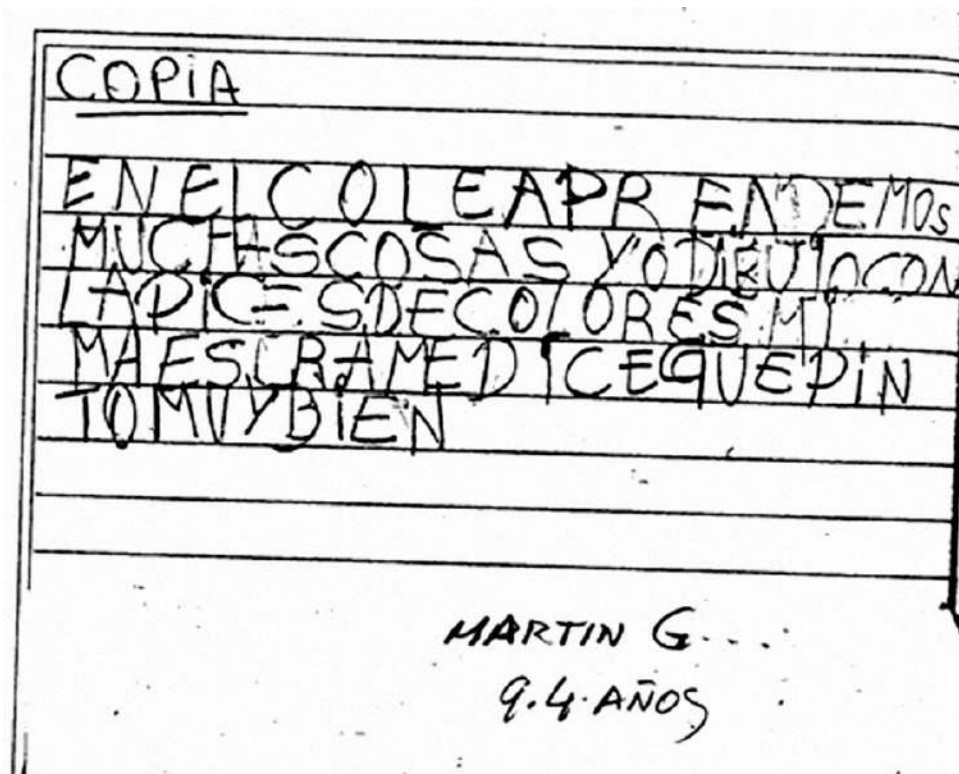 COPiA
EN El COLEAPR ENDEMOS
MUCHASCOSAS YO DIBUJOCON
LAPiCESDECOLORES.Mi
MAESTRAMEDiCEQUEPiN
TOMUYBiEN
MARTIN G...
9.4.AÑOS